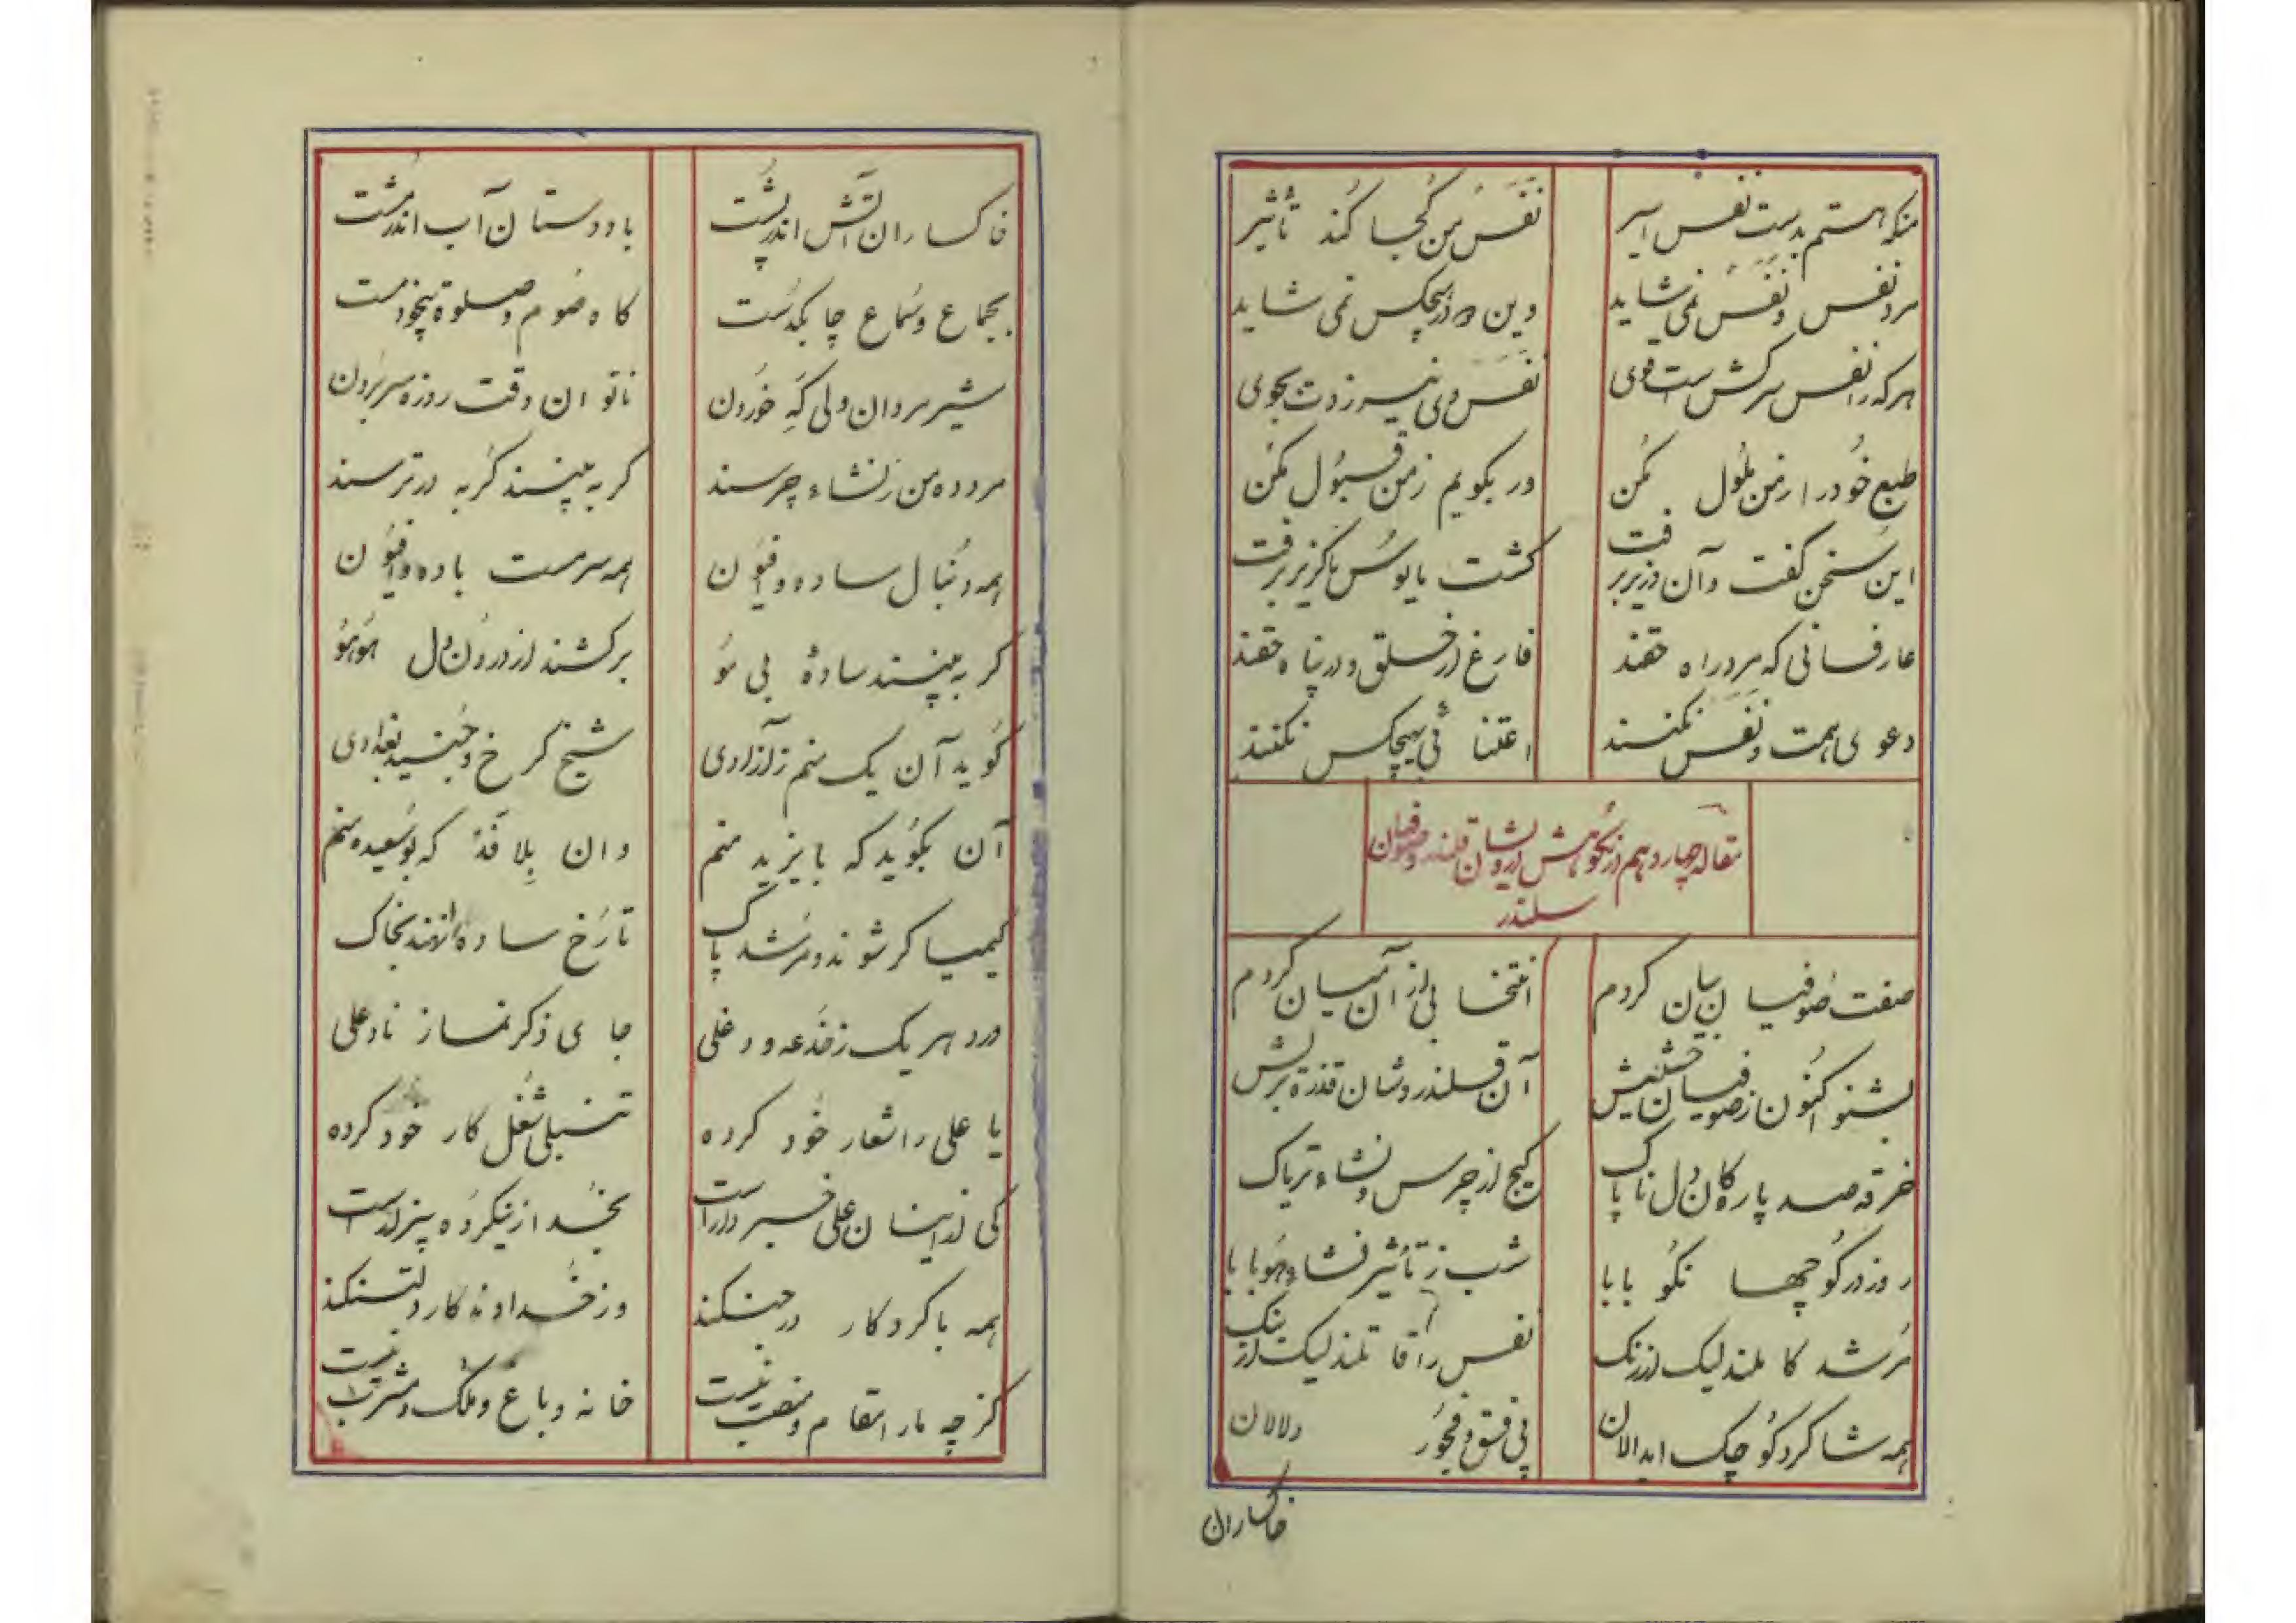 منکه هستم بدست نفس اسیر نفس من کجا کند تأثیر
مرد نفس و نفس نمی شاید وین دو در هیچکس نمی شاید
هر که را نفس سرکش است و دی نفس وی نیز زوت بجوی
طبع خود را ز من ملول مکن ور بگویم ز من قبول مکن
این سخن گفت و آن وزیر برفت گشت مایوس ناگزیر برفت
عارفانی که مرد راه حقند فارغ از خلق و در پناه حقند
دعوی همت و نفس نکنند اعتنائی بهیچکس نکنند
مقاله چهاردهم در نکوهش درویشان قلندر و صوفیان
سلندر
صفت صوفیان بیان کردم انتخابی از آن میان کردم
بشنو اکنون ز صوفیان حشیش آن قلندر وشان قذرة ریش
خرقه صد پاره کان دل ناپاک گیج از چرس و نشاء تریاک
روز در کوچها نکو بابا شب ز تأثیر نشاء هو بابا
مرشد کاملند لیک از رنک نفس را قاتلند لیک از بنک
همه شاکرد کوچک ابدالان پی فسق و فجور دلالان
خاکساران
خاکساران آتش اندر پشت بادوستان آب اندر مشت
بجماع و سماع چابکدست کاه صوم و صلوة بیخود مست
شیر مردان ولی که خوردن ناتوان وقت روزه سر بردن
مرد ده من ز نشاء چرسند کر به بینند کربه در ترسند
همه دنبال ساده و افیون همه سرمست باده و افیون
کر به بینند سادهٔ بی مو برکشند از درون دل هو هو
کوید آن یک منم ز آزادی شیخ کرخ و جنید بغدادی
آن بکوید که بایزید منم وان بلافد که بوسعیده منم
کیمیا کر شوند و مرشد پاک تا رخ ساده را نهند بخاک
ورد هر یک ز خدعه و دغلی جای ذکر نماز ناد علی
یا علی را شعار خود کرده تنبلی شغل کار خود کرده
کی از اینان علی خبردار است بخدا زینکروه بیزار است
همه با کردکار در جنکند وز خداوندکار دلتنکند
کرچه ما را مقام و منصب نیست خانه و باغ و ملک و مشرب نیست